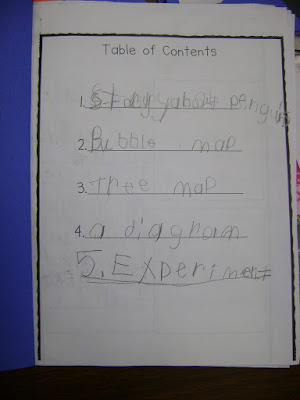 Table of Contents
1. Story about penguins
2. Bubble map
3. Tree map
4. a diagram
5. Experiment